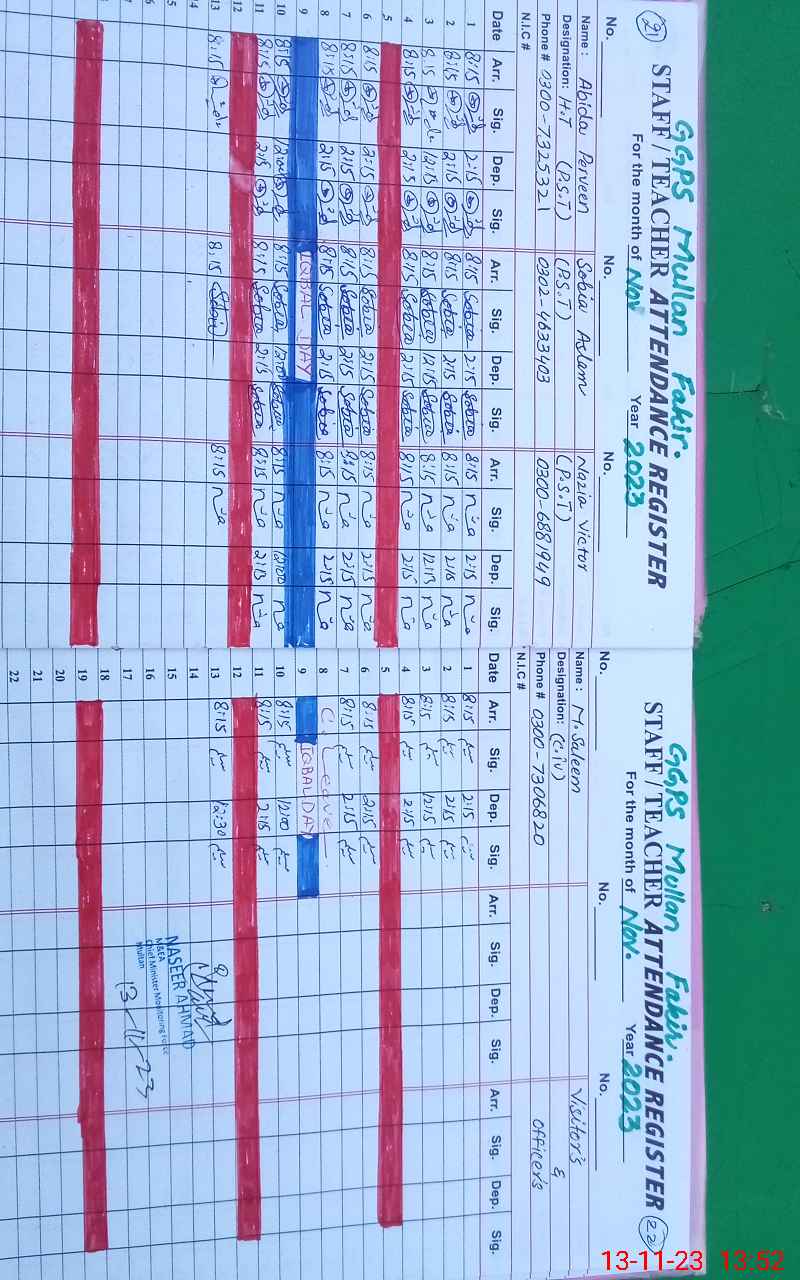 21
GGPS Mullan Fakir.
STAFF / TEACHER ATTENDANCE REGISTER
For the month of Nov Year 2023
No. No. No.
Name : Abida Perveen Sobia Aslam Nazia Victor
Designation: H.T (P.S.T) (P.S.T) (P.S.T)
Phone # 0300-7325321 0302-4633403 0300-6881949
N.I.C #
Date Arr. Sig. Dep. Sig. Arr. Sig. Dep. Sig. Arr. Sig. Dep. Sig.
1 8:15 2:15 8:15 Sobia 2:15 Sobia 8:15 2:15
2 8:15 2:15 8:15 Sobia 2:15 Sobia 8:15 2:15
3 8:15 12:15 8:15 Sobia 12:15 Sobia 8:15 12:15
4 8:15 2:15 8:15 Sobia 2:15 Sobia 8:15 2:15
5
6 8:15 2:15 8:15 Sobia 2:15 Sobia 8:15 2:15
7 8:15 2:15 8:15 Sobia 2:15 Sobia 8:15 2:15
8 8:15 2:15 8:15 Sobia 2:15 Sobia 8:15 2:15
9 IQBAL DAY
10 8:15 12:00 8:15 Sobia 12:00 Sobia 8:15 12:00
11 8:15 2:15 8:15 Sobia 2:15 Sobia 8:15 2:15
12
13 8:15 8:15 Sobia 8:15
14
15
GGPS Mullan Fakir.
STAFF / TEACHER ATTENDANCE REGISTER 22
For the month of Nov. Year 2023
No. No. No.
Name : M. Saleem Visitor's &
Designation: (C.iv) officer's
Phone # 0300-7306820
N.I.C #
Date Arr. Sig. Dep. Sig. Arr. Sig. Dep. Sig. Arr. Sig. Dep. Sig.
1 8:15 2:15
2 8:15 2:15
3 8:15 12:15
4 8:15 2:15
5
6 8:15 2:15
7 8:15 2:15
8 C. Leave
9 IQBAL DAY
10 8:15 12:00
11 8:15 2:15
12
13 8:15 12:30
14
15
16
17
18
19
20
21
22
NASEER AHMAD
M&EA
Chief Minister Monitoring Force
Multan
13-11-23
13-11-23 13:52